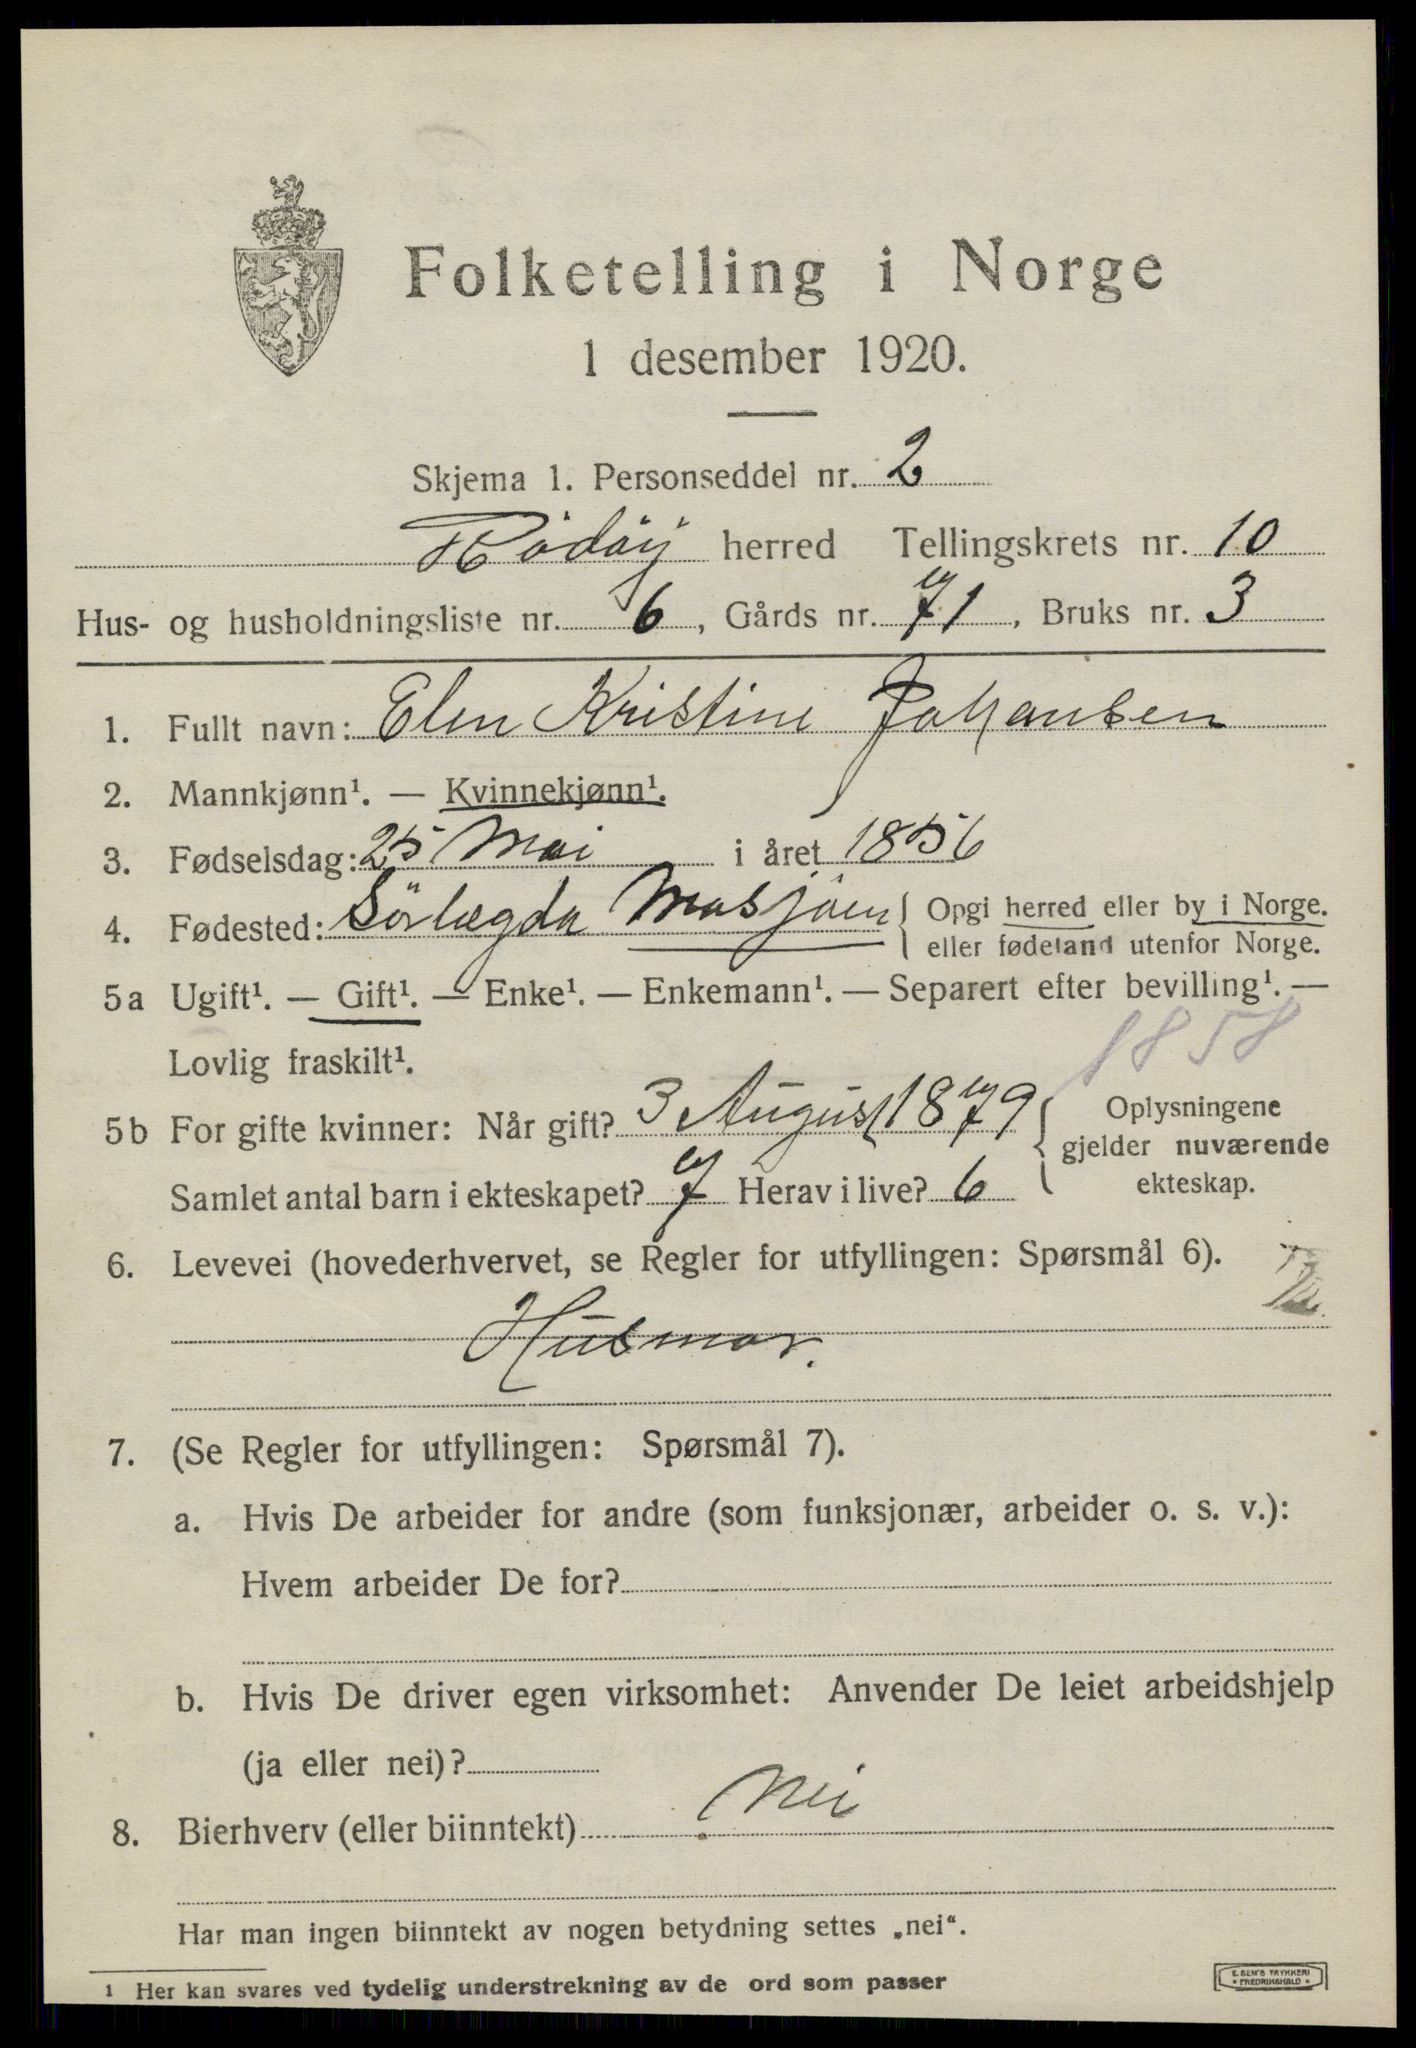 Folketelling i Norge
1 desember 1920.
Skjema 1. Personseddel nr. 2
Rödöy herred Tellingskrets nr. 10
Hus- og husholdningsliste nr. 6, Gårds nr. 71, Bruks nr. 3
1. Fullt navn: Elen Kristine Johansen
2. Mannkjønn¹. — Kvinnekjønn¹.
3. Fødselsdag: 25 Mai i året 1856
4. Fødested: Sörlægda Mosjöen { Opgi herred eller by i Norge.
eller fødeland utenfor Norge.
5a Ugift¹. — Gift¹. — Enke¹. — Enkemann¹. — Separert efter bevilling¹. —
Lovlig fraskilt¹.
1858
5b For gifte kvinner: Når gift? 3 August 1879 { Oplysningene
gjelder nuværende
Samlet antal barn i ekteskapet? 7 Herav i live? 6 ekteskap.
6. Levevei (hovederhvervet, se Regler for utfyllingen: Spørsmål 6).
Husmor.
7. (Se Regler for utfyllingen: Spørsmål 7).
a. Hvis De arbeider for andre (som funksjonær, arbeider o. s. v.):
Hvem arbeider De for?
b. Hvis De driver egen virksomhet: Anvender De leiet arbeidshjelp
(ja eller nei)?
8. Bierhverv (eller biinntekt) Nei
Har man ingen biinntekt av nogen betydning settes „nei“.
1 Her kan svares ved tydelig understrekning av de ord som passer
E. SEM'S TRYKKERI
FREDRIKSHALD